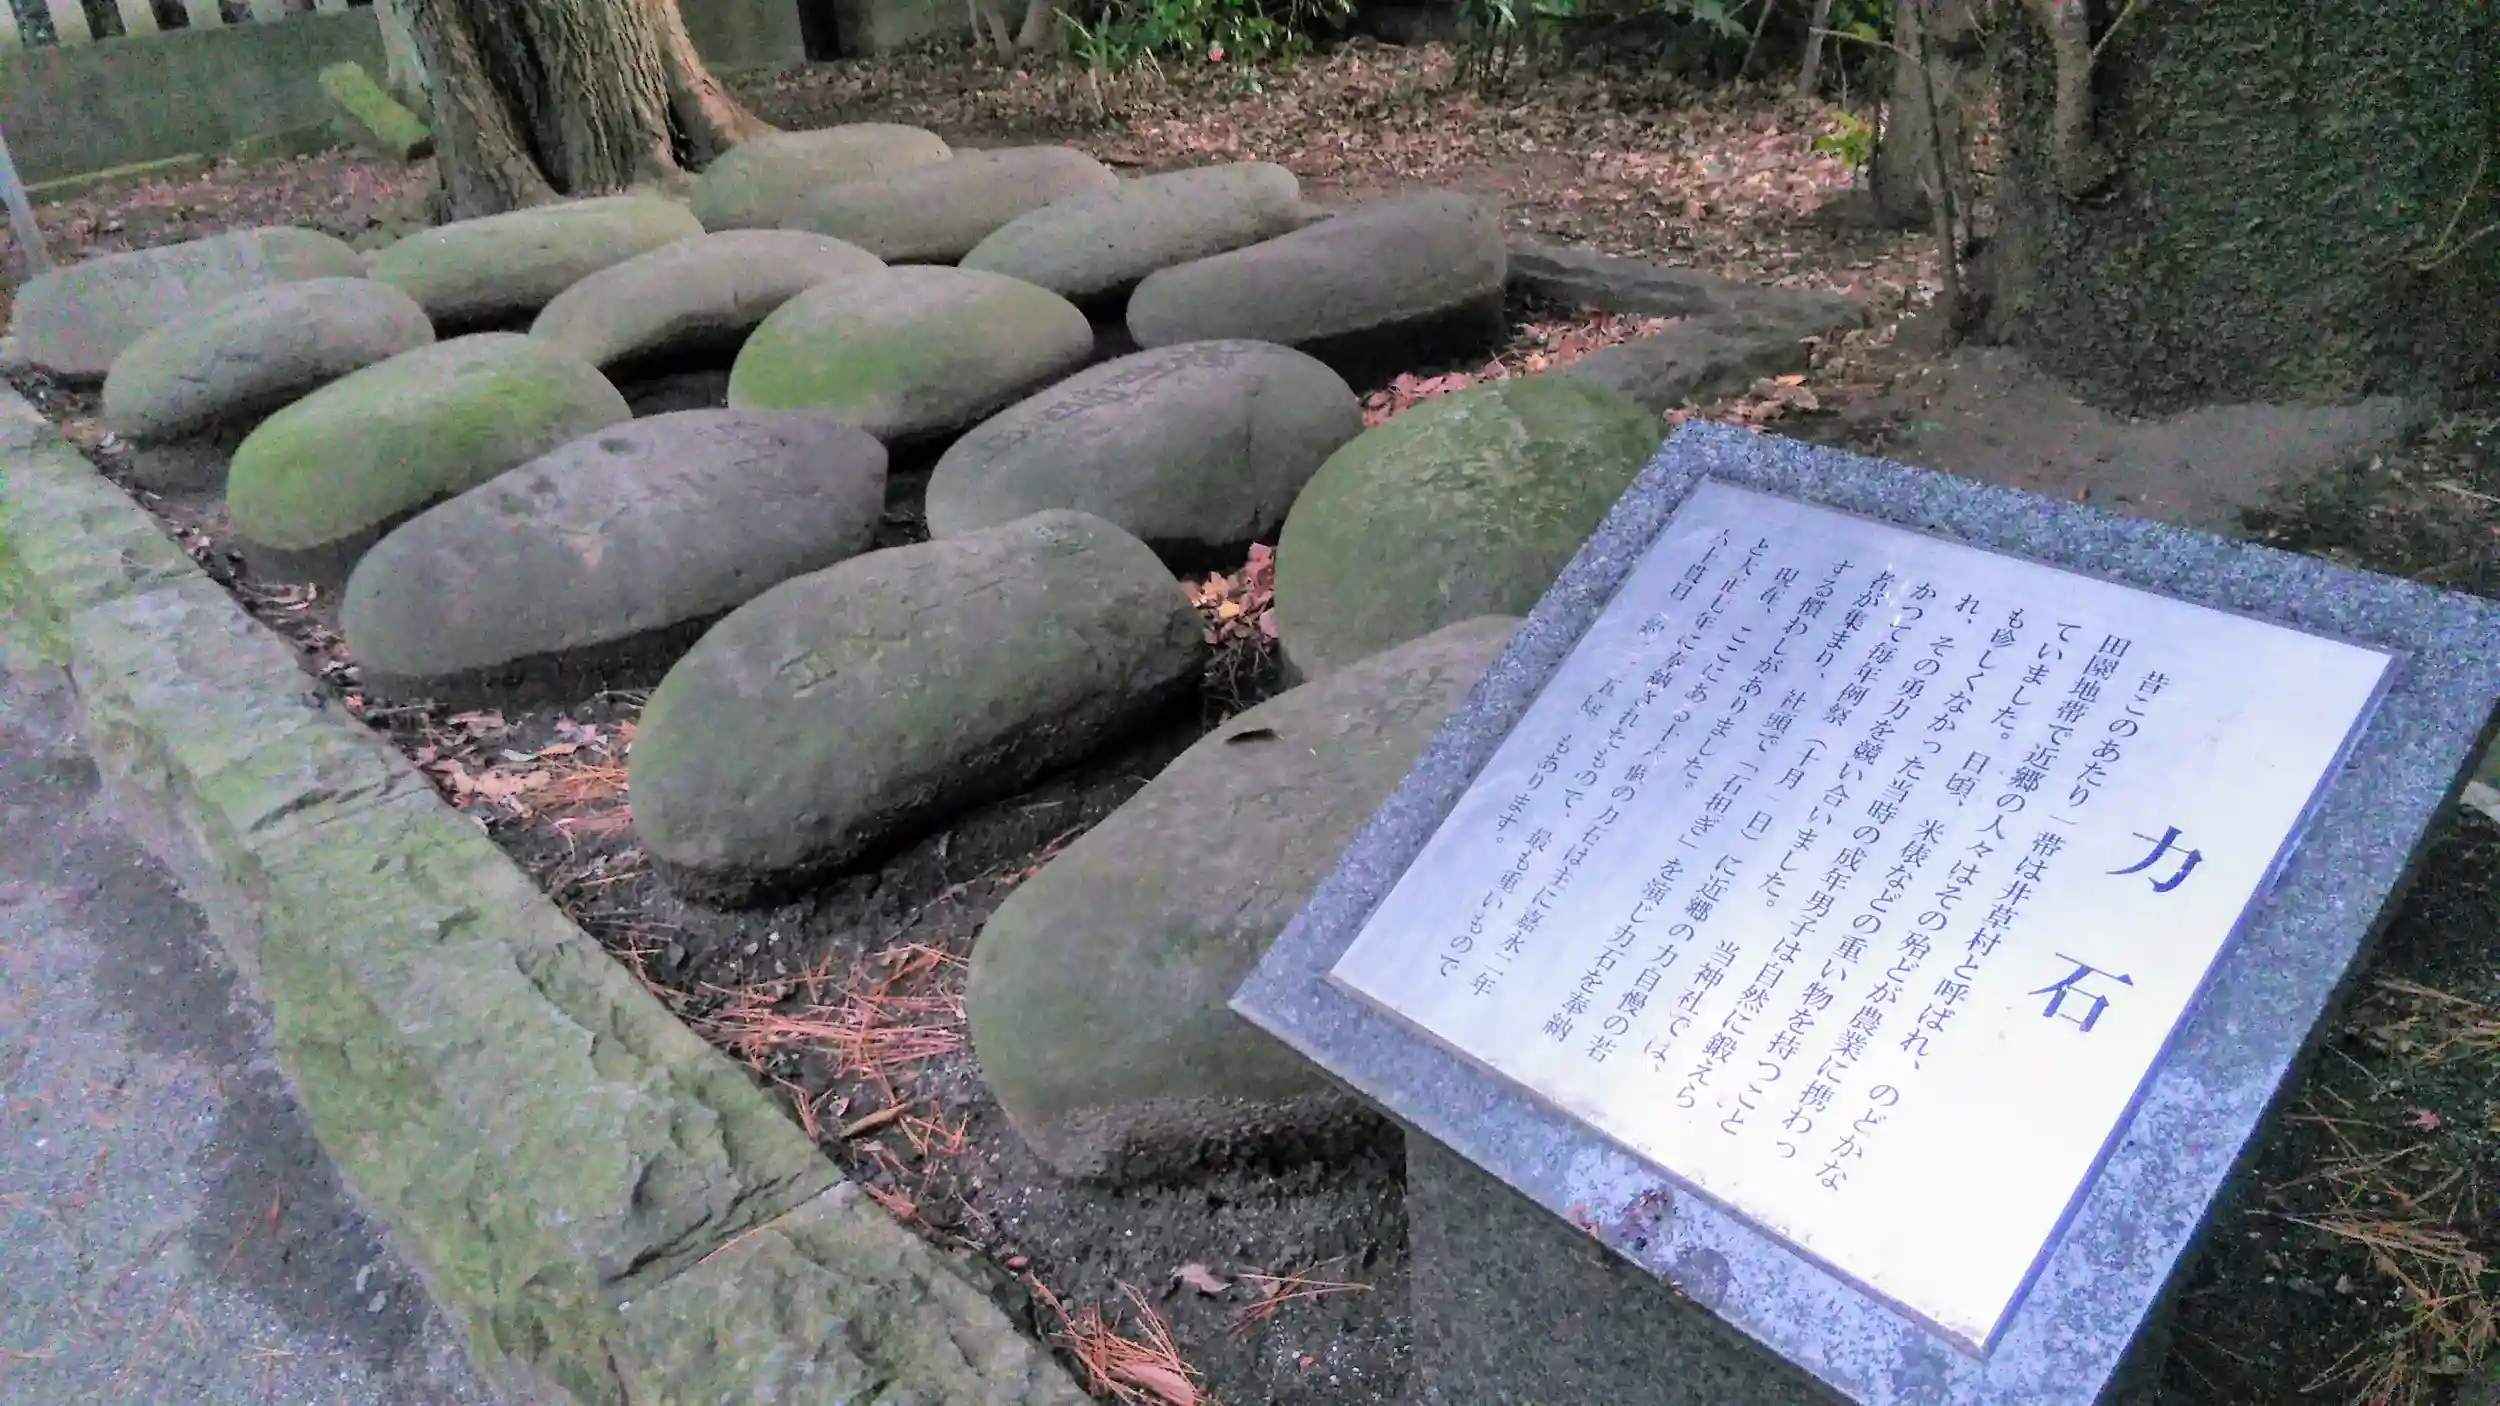 力石
昔このあたり一帯は井草村と呼ばれ、のどかな
田園地帯で近郷の人々はその殆どが農業に携わっ
ていました。日頃、米俵などの重い物を持つこと
も珍しくなかった当時の成年男子は自然に鍛えら
れ、その勇力を競い合いました。当神社では、
かつて毎年例祭(十月一日)に近郷の力自慢の若
者が集まり、社頭で「石担ぎ」を演じ力石を奉納
する慣わしがありました。
現在、ここにある十六個の力石は主に嘉永二年
と大正七年に奉納されたもので、最も重いもので
貫目 もあります。